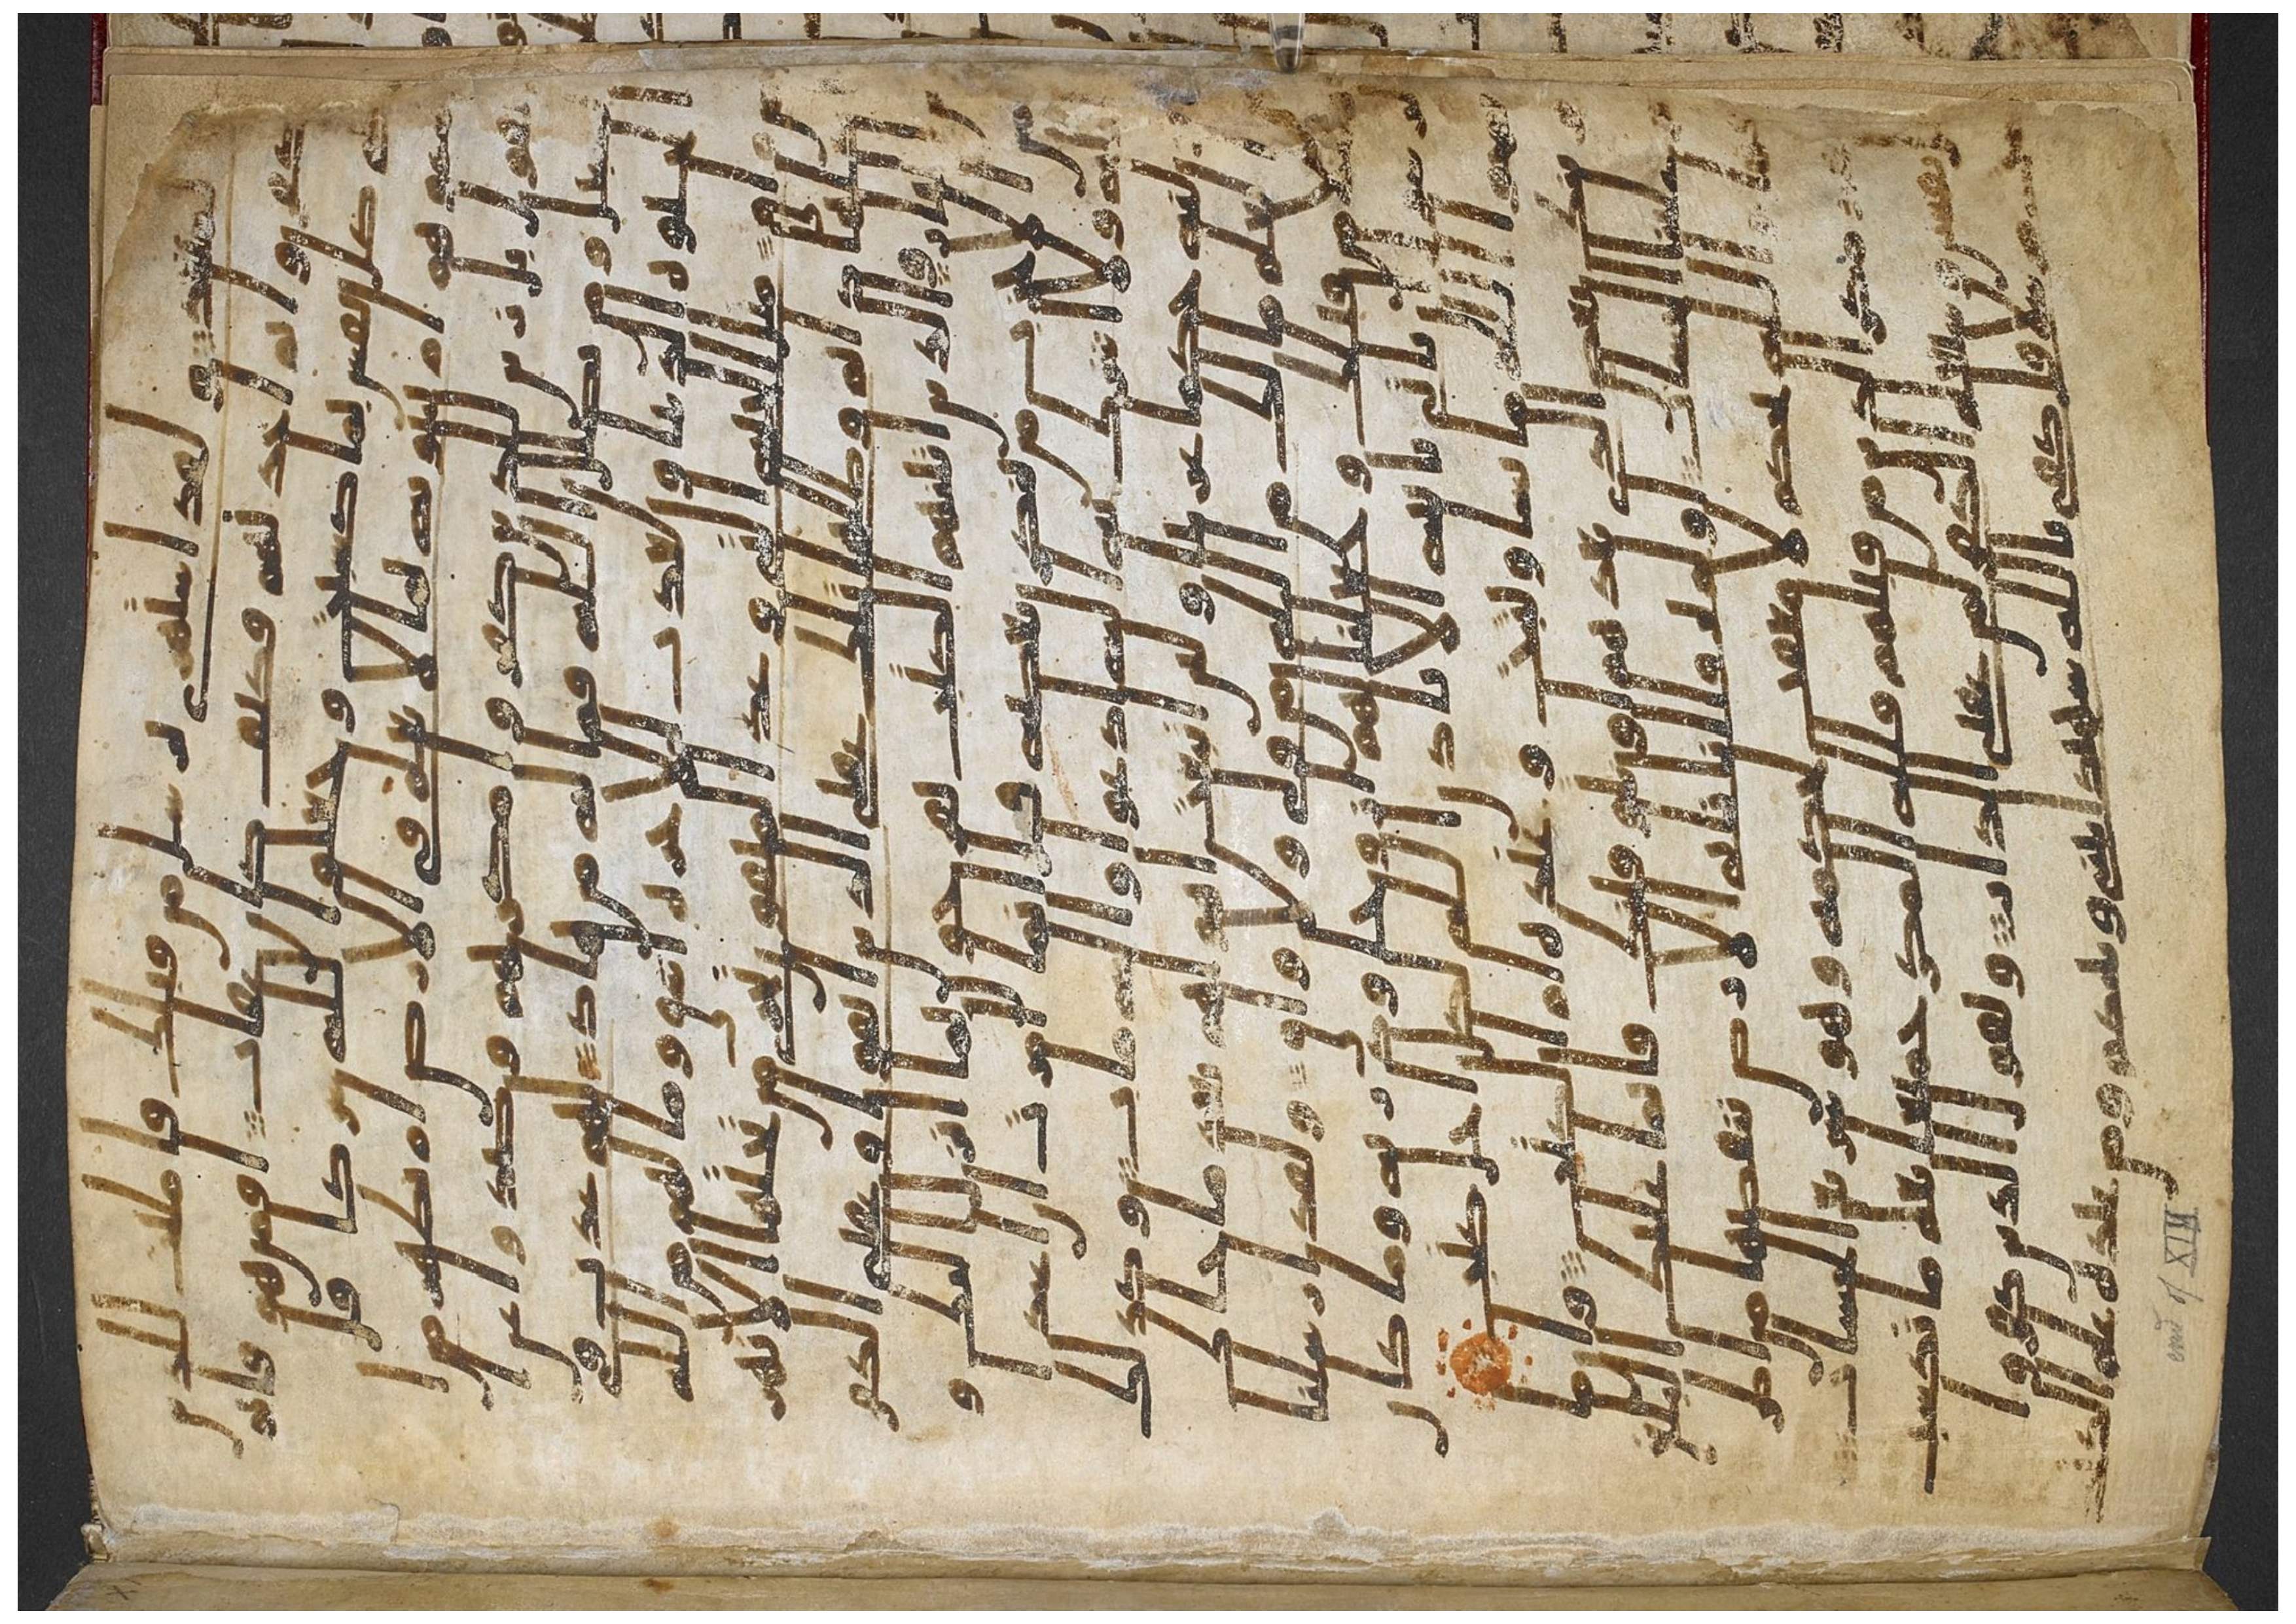 الميعد ولقد استهزى برسل من قبلك فامليت للذين
كفروا ثم اخذتهم فكيف كان عقاب افمن هو قام
على كل نفس بما كسبت وجعلوا لله شركا قل
سموهم ام تنبونه بما لا يعلم في الارض ام بظهر من
القول بل زين للذين كفروا مكرهم وصدوا عن
السبيل ومن يضلل الله فما له من هاد لهم عذب في
الحيوة الدنيا ولعذب الاخرة اشق وما لهم من الله
من واق مثل الجنة التي وعد المتقون تجري من تحتها الانهر
اكلها دام وظلها تلك عقبى الذين اتقوا وعقبى
الكفرين النار والذين اتينهم الكتب يفرحون بما انزل اليك و
من الاحزاب من ينكر بعضه قل انما امرت ان اعبد
الله ولا اشرك به اليه ادعوا واليه ماب وكذلك
انزلنه حكما عربيا ولين اتبعت اهواهم بعد ما جاك
من العلم ما لك من الله من ولي ولا واق ولقد ارسلنا
رسلا من قبلك وجعلنا لهم ازوجا وذرية وما كان
لرسول ان ياتي باية الا باذن الله لكل اجل كتب
يمحوا الله ما يشا ويثبت وعنده ام الكتب وان ما
نرينك بعض الذي نعدهم او نتوفينك فانما عليك البلغ
وعلينا الحساب اولم يروا انا ناتي الارض ننقصها من اطرافها
والله يحكم لا معقب لحكمه وهو سريع الحساب
وقد مكر الذين من قبلهم فلله المكر جميعا يعلم ما تكسب
كل نفس وسيعلم الكفر لمن عقبى الدار ويقول الذين كفروا
لست مرسلا قل كفى بالله شهيدا بيني وبينكم ومن عنده علم الكتب
end of XIII